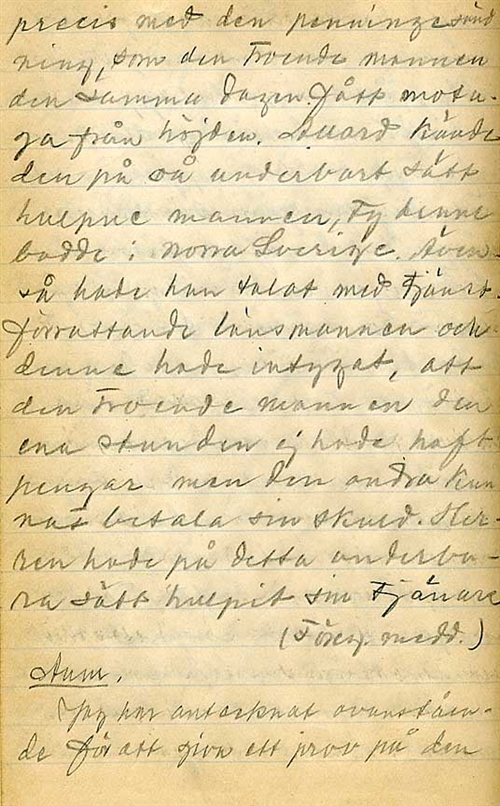 precis med den penningesänd
ning, som den troende mannen
den samma dagen fått motta-
ga från höjden. kände
den på så underbart sätt
hulpne mannen, ty denne
bodde i norra Sverige. Även-
så hade han talat med tjänst-
förrättande länsmannen och
denne hade intygat, att
den troende mannen den
ena stunden ej hade haft
pengar men den andra kun
nat betala sin skuld. Her-
ren hade på detta underba-
ra sätt hulpit sin tjänare
(Föreg. medd.)
Anm.
Jag har antecknat ovanståen-
de för att giva ett prov på den